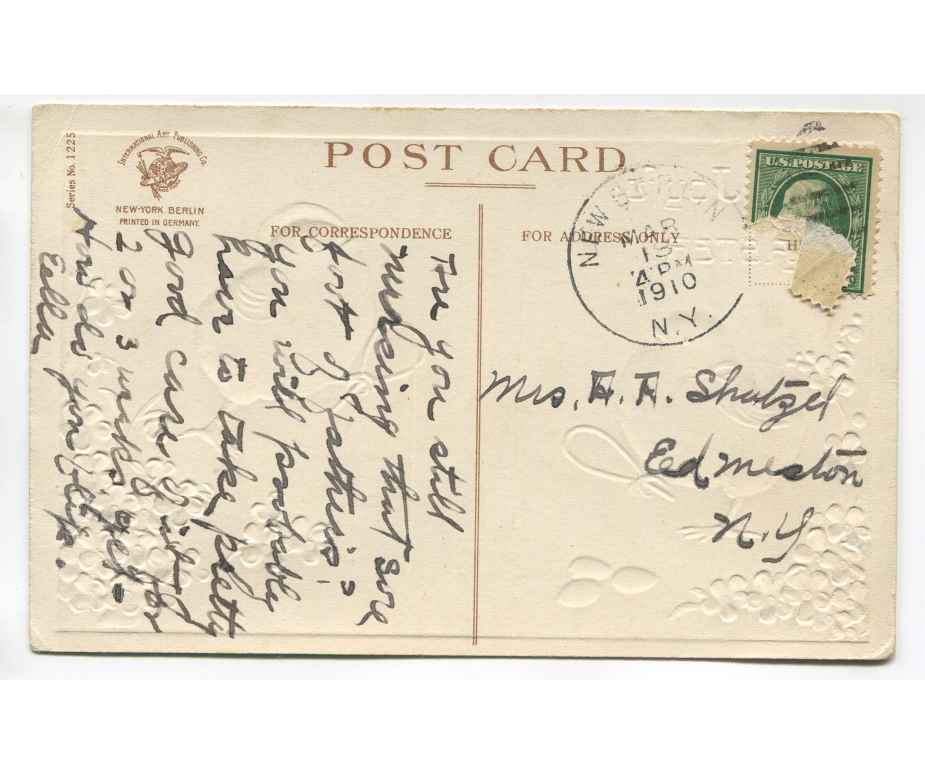 Series No. 1225
INTERNATIONAL ART PUBLISHING Co.
NEW-YORK BERLIN
PRINTED IN GERMANY.
POST CARD
FOR CORRESPONDENCE
FOR ADDRESS ONLY
U.S. POSTAGE
NEW
N.Y.
MAR
15
4 PM
1910
Mrs. A. A. Shutzel
Edmeston
N.Y
Are you still
nursing that sore
foot of
you will probably
have to take pretty
good care of it for
2 or 3 weeks yet
How do you